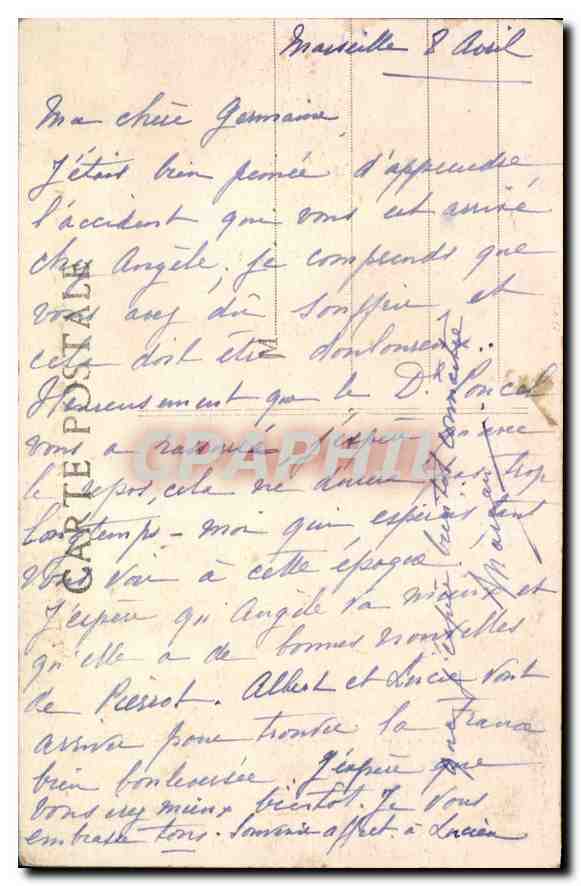 Marseille 8 Avril
Ma chère Germaine
J'étais bien peinée d'apprendre
l'accident qui vous est arrivé
chez Angèle, je comprends que
vous avez dû souffrir et
cela doit être douloureux..
Heureusement que le Dr Poncel
vous a rassurée, j'espère qu'avec
le repos, cela ne durera pas trop
longtemps - moi qui espérais tant
vous voir à cette époque !
J'espère qu'Angèle va mieux et
qu'elle a de bonnes nouvelles
de Pierrot. Albert et Lucie vont
arriver pour trouver la France
bien bouleversée. J'espère que
vous irez mieux bientôt. Je vous
embrasse tous. Souvenir affect. à Lucien
que j'espère bientôt connaître
CARTE POSTALE
M
CPAPHIL